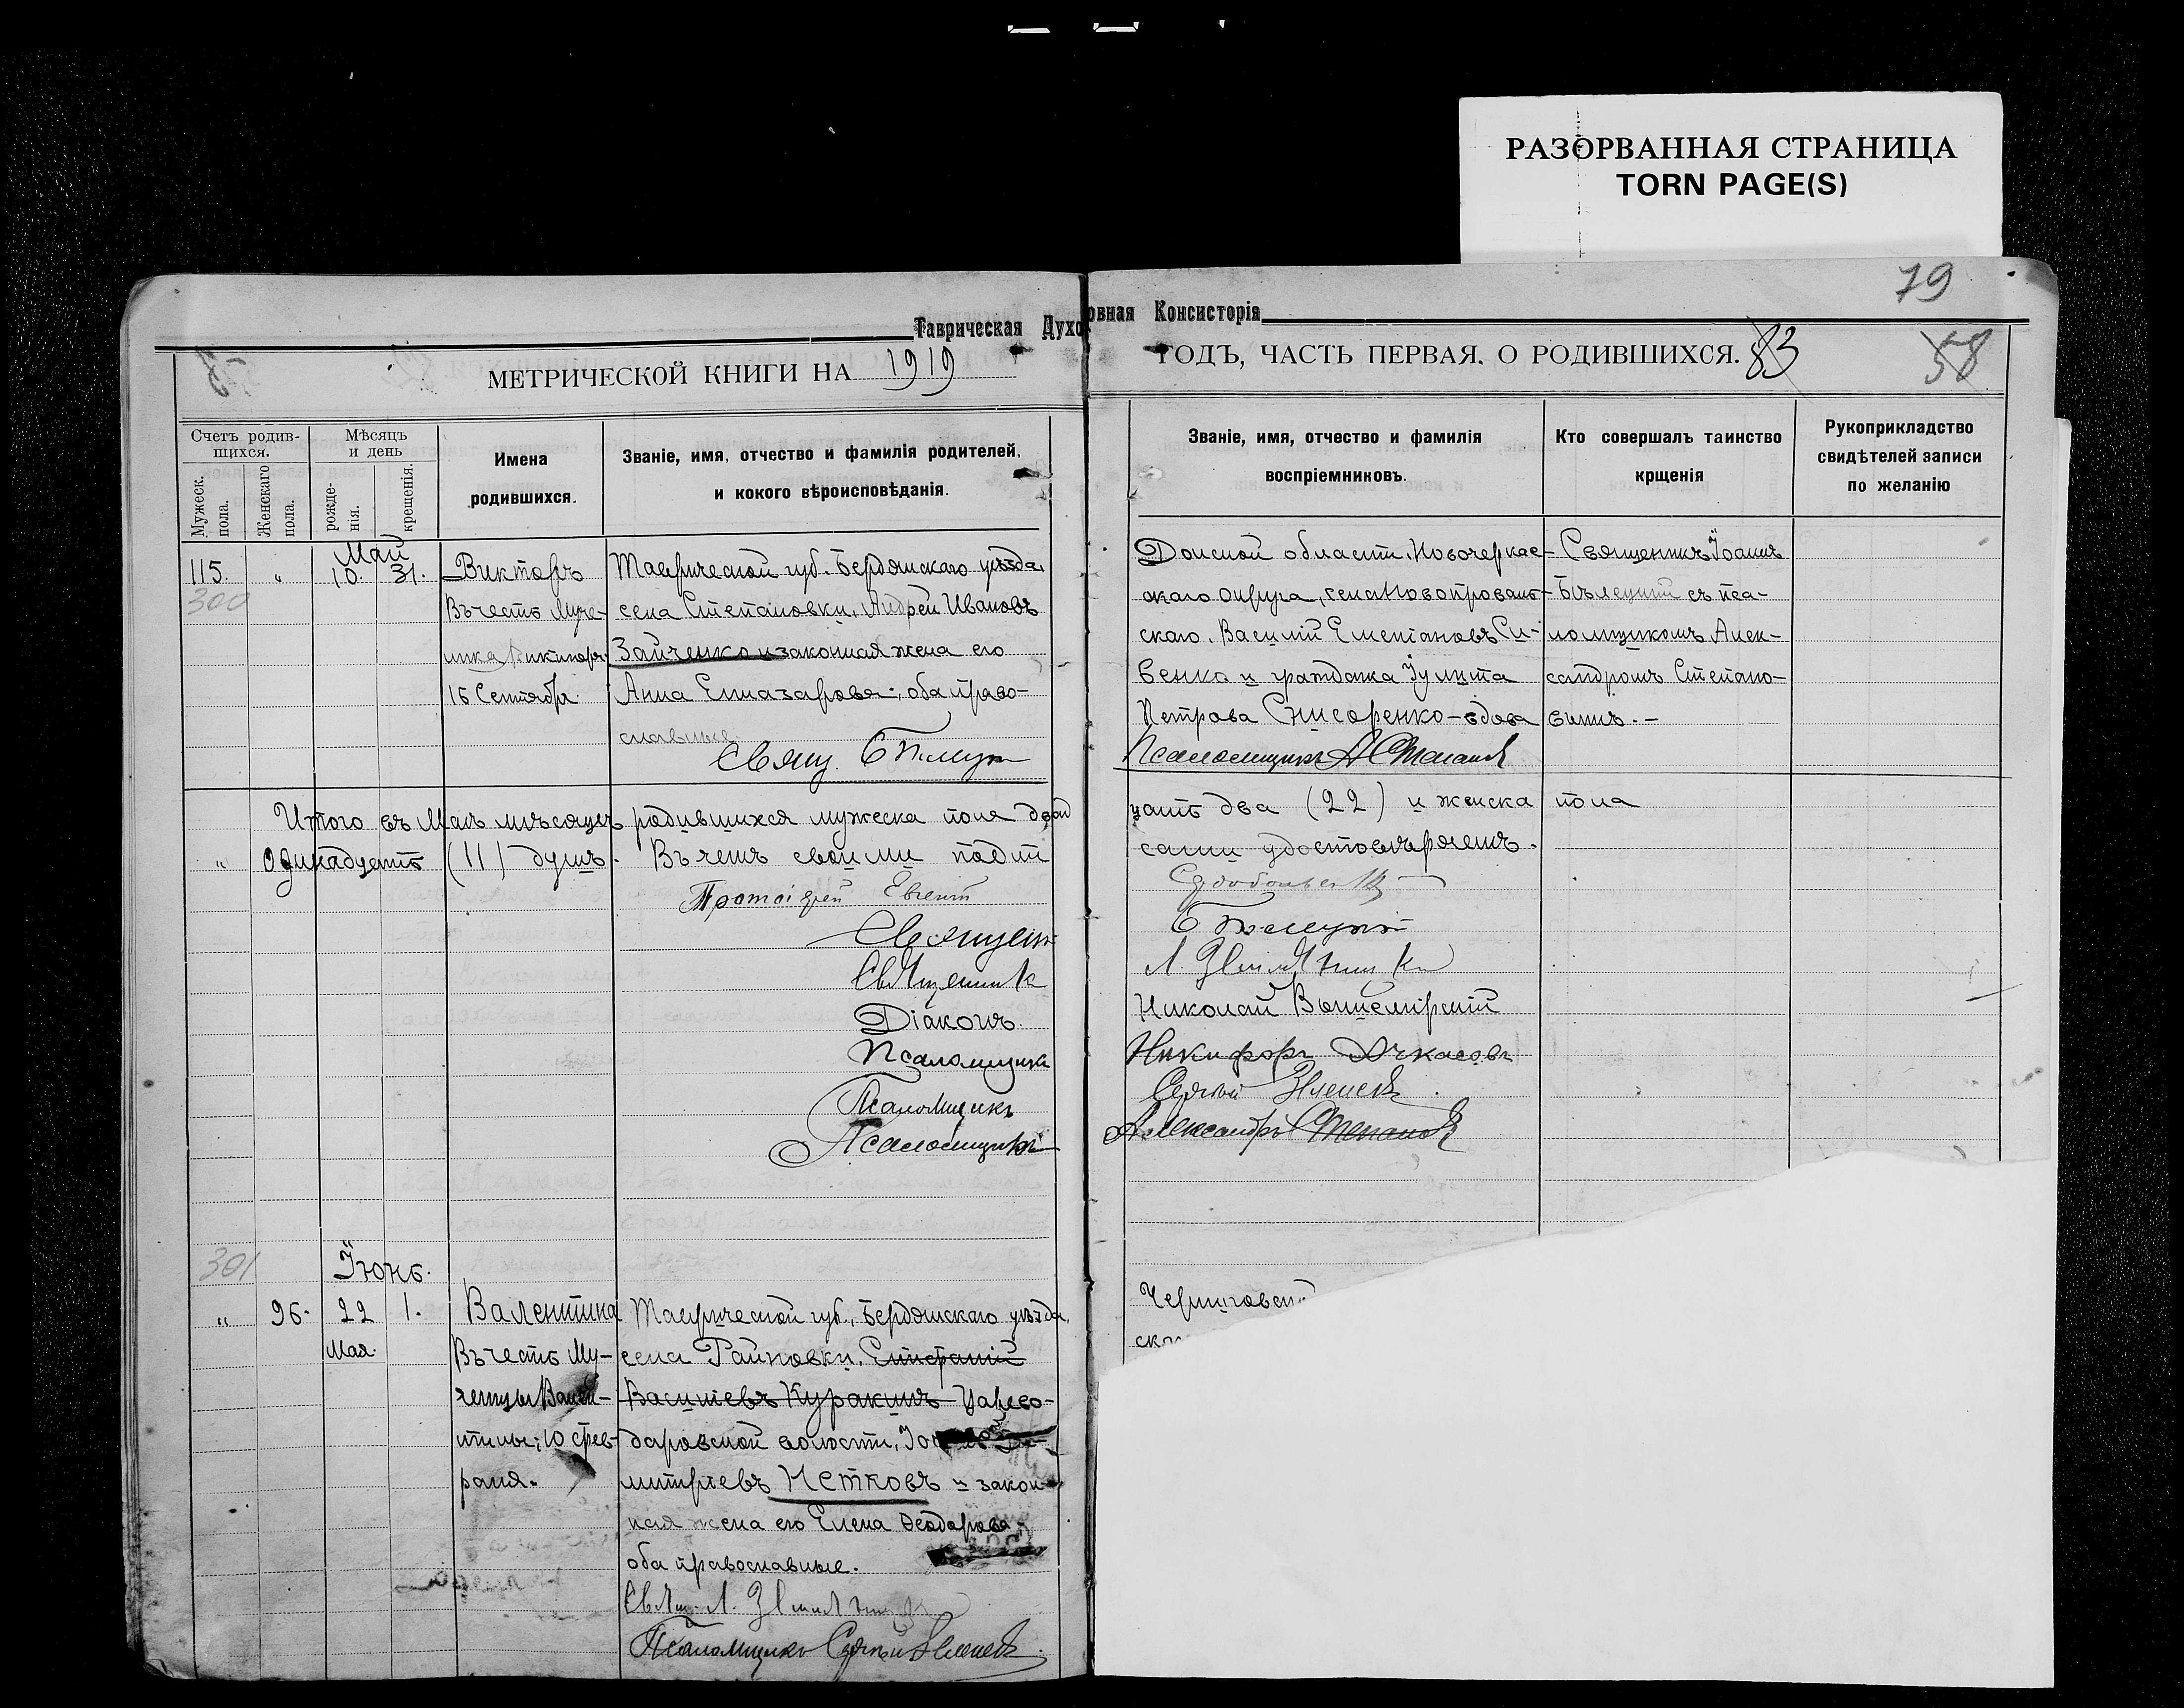 РАЗОРВАННАЯ СТРАНИЦА
TORN PAGE(S)
79
Таврическая Духовная Консисторія
МЕТРИЧЕСКОЙ КНИГИ НА 1919 ГОДЪ, ЧАСТЬ ПЕРВАЯ. О РОДИВШИХСЯ. 83 58
Счетъ родив-
шихся.
Мужеск.
пола.
Женскаго
пола.
Мѣсяцъ
и день
рожде-
нія.
крещенія.
Имена
родившихся.
Званіе, имя, отчество и фамилія родителей,
и кокого вѣроисповѣданія.
Званіе, имя, отчество и фамилія
воспріемниковъ.
Кто совершалъ таинство
крщенія
Рукоприкладство
свидѣтелей записи
по желанію
Май
115. " 10. 31.
300
Викторъ
Въ честь Муче-
ника
16 Сентябр.
Таврической губ. Бердянскаго уѣзда,
села Степановки, Андрей Ивановъ
Зайченко и законная жена его
Анна Елиазарова; оба право-
славные.
Свящ. Бѣлецкій
Донской области, Новочеркас-
скаго округа, села
скаго. Василій Емеліановъ Си-
венко и гражданка Іулита
Петрова Снисоренко - вдова
Псаломщикъ А Степановъ
Священникъ Іоаннъ
Бѣлецкій съ пса-
ломщикомъ Алек-
сандромъ Степано-
вымъ. -
Итого въ Маѣ мѣсяцѣ родившихся мужеска пола двад
цать два (22) и женска пола
" одинадцать (11) душъ. Въ чемъ своими подпи
сами удостовѣряемъ.
Протоіерей Евгеній
Священникъ Бѣлецкій
Священникъ Л.
Діаконъ Николай
Псаломщикъ Никифоръ
Псаломщикъ Сергѣй
Псаломщикъ Александръ Степановъ
301
Іюнь.
" 96. 22 1.
Мая.
Валентина
Въ честь Му-
ченицы Вален-
тины; 10 фев-
раля.
Таврической губ., Бердянскаго уѣзда,
села Райновки, Епифаній
Василіевъ Куракинъ Царево-
даровской волости,
митріевъ Нетковъ и закон-
ная жена его Елена Ѳеодорова;
оба православные.
Свящ. Л.
Псаломщикъ Сергѣй
Черниговской